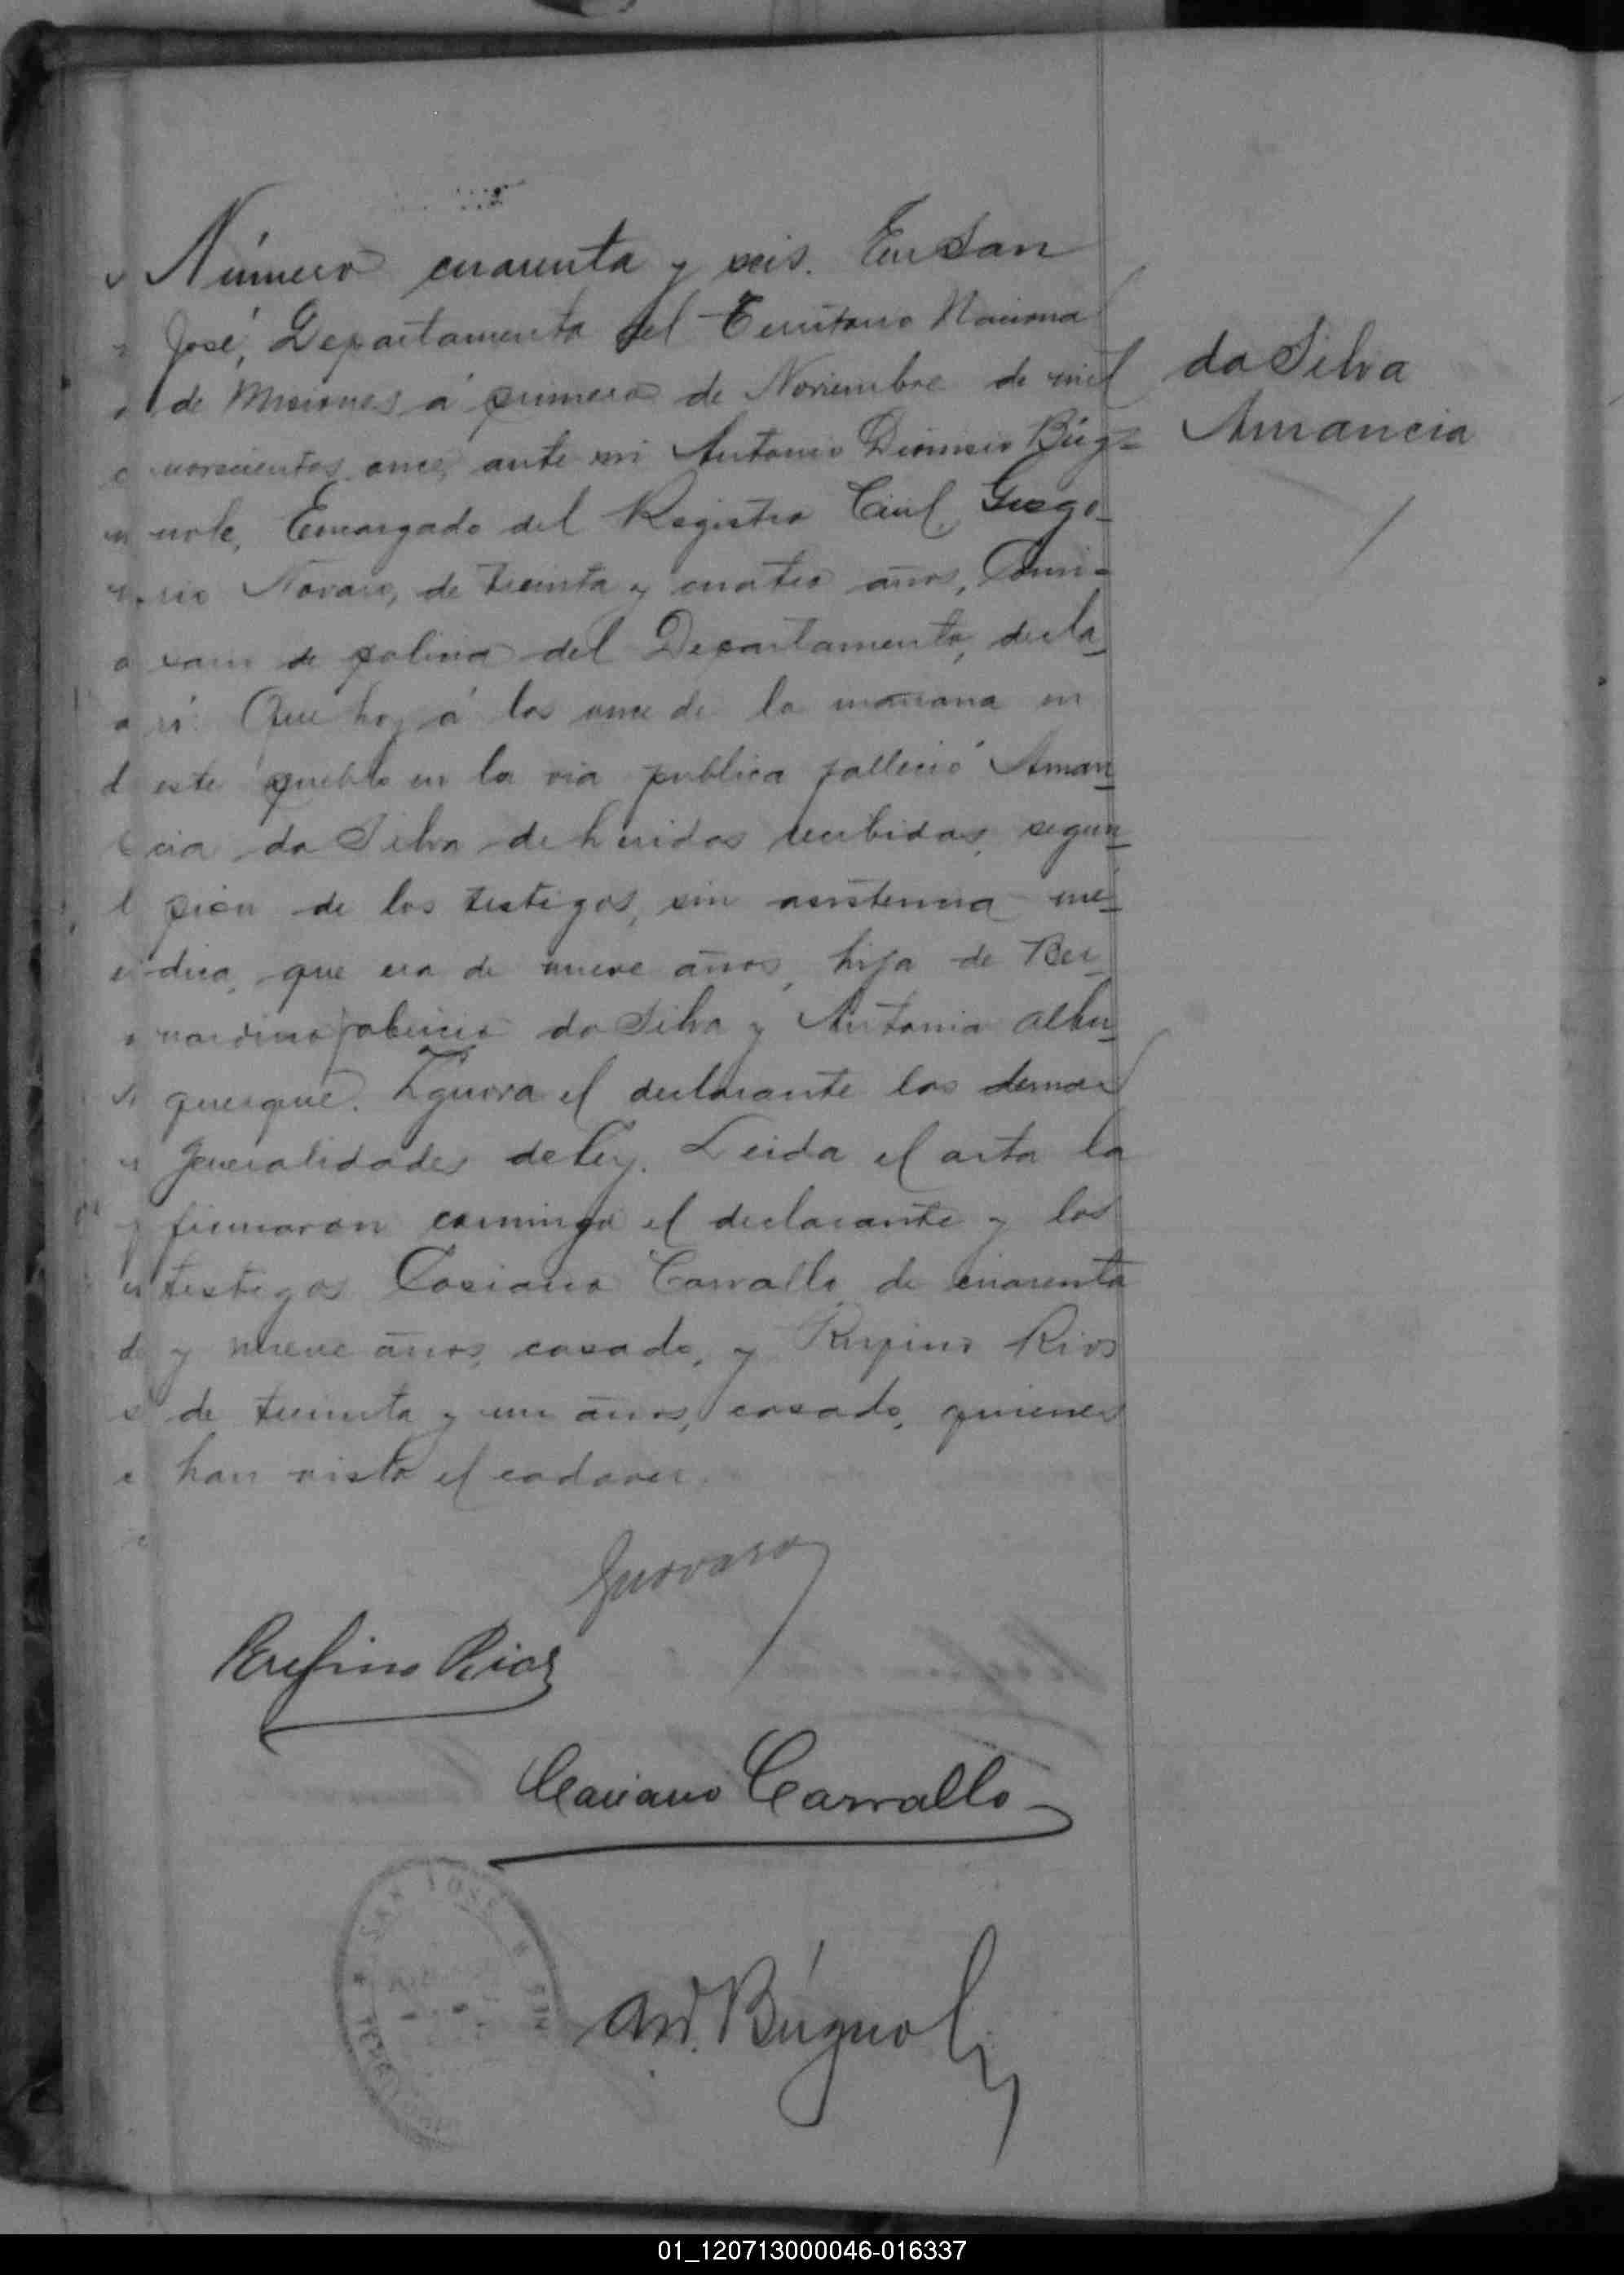 Número cuarenta y seis. En San
José, Departamento del Territorio Nacional
de Misiones á primero de Noviembre de mil
novecientos once, ante mi Antonio Dionisio Búg-
nole, Encargado del Registro Civil, Grego-
rio Novaro, de treinta y cuatro años, Comi-
sario de policia del Departamento, decla-
ró: Que hoy á las once de la mañana en
este pueblo en la via publica falleció Aman-
cia da Silva de heridas recibidas, segun
de los testigos, sin asistencia mé-
dica, que era de nueve años, hija de Ber-
nardino da Silva y Antonia Albu-
querque. Ignora el declarante las demas
generalidades de ley. Leida el acta la
firmaron conmigo el declarante y los
testigos Casiano Carvallo de cuarenta
y nueve años, casado, y Rufino Rios
de treinta y un años, casado, quienes
han visto el cadaver.
da Silva
Amancia
GNovaro
Rufino Rios
Casiano Carvallo
AD. Búgnol
SAN JOSE
01_120713000046-016337